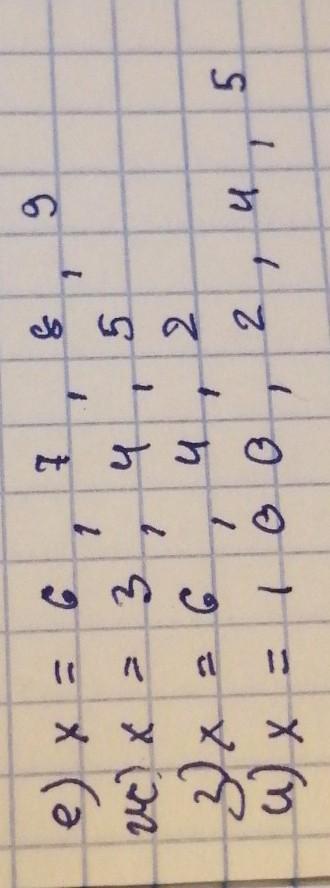 е) x = 6, 7, 8, 9
ж) x = 3, 4, 5
з) x = 6, 4, 2
и) x = 100, 2, 4, 5